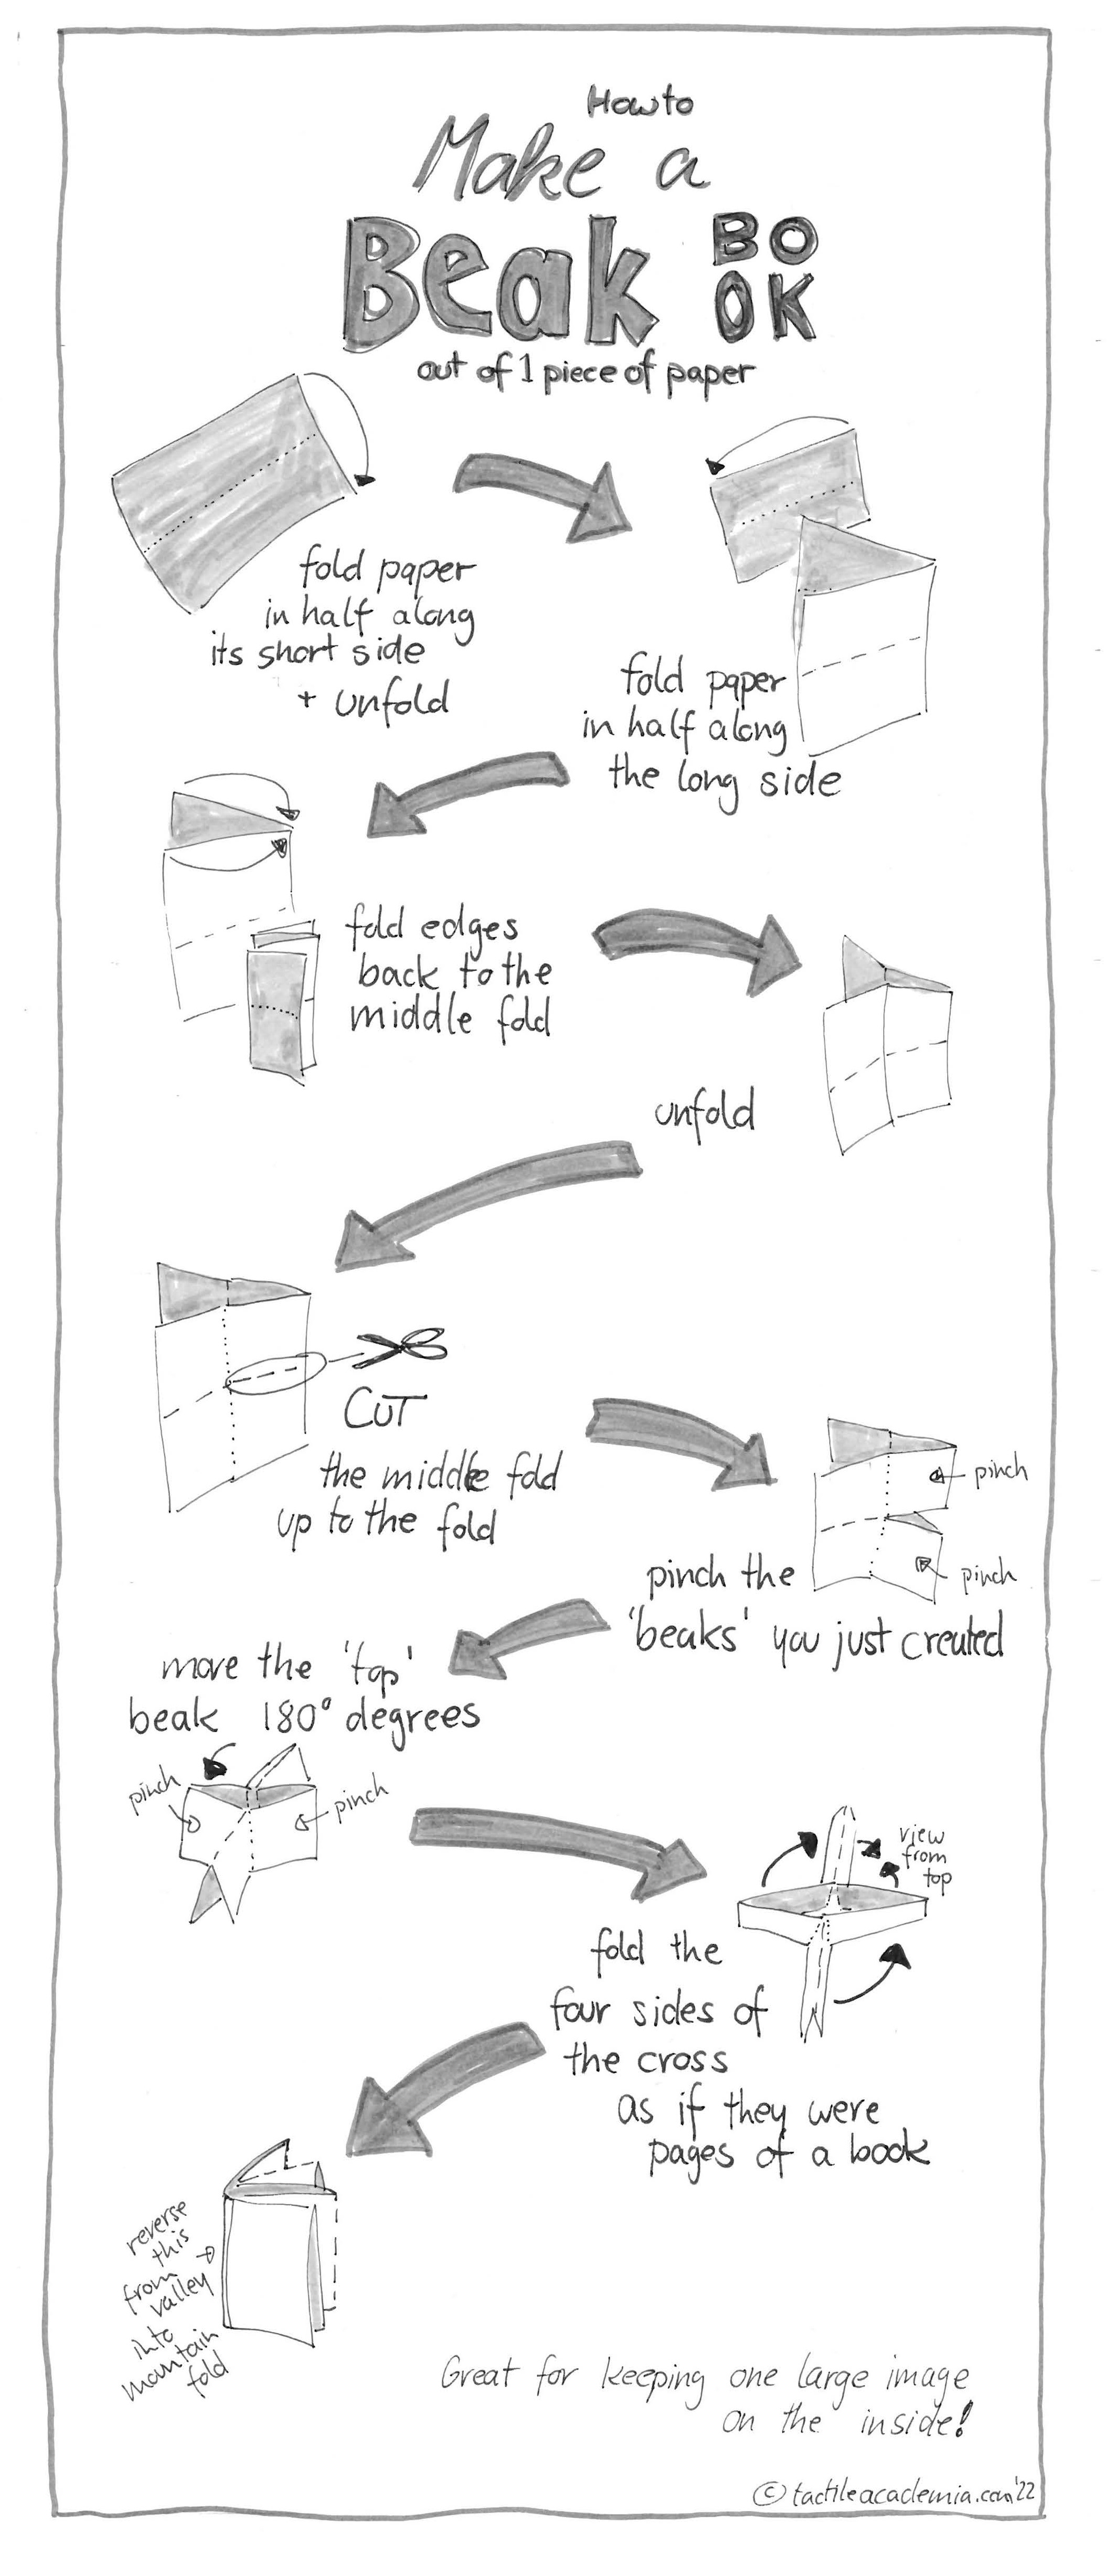 How to
Make a
Beak BO
OK
out of 1 piece of paper
fold paper
in half along
its short side
+ unfold
fold paper
in half along
the long side
fold edges
back to the
middle fold
unfold
CUT
the middle fold
up to the fold
pinch
pinch
pinch the
'beaks' you just created
move the 'top'
beak 180° degrees
pinch
pinch
view
from
top
fold the
four sides of
the cross
as if they were
pages of a book
reverse
this
from
valley
into
mountain
fold
Great for keeping one large image
on the inside!
© tactileacademia.com '22